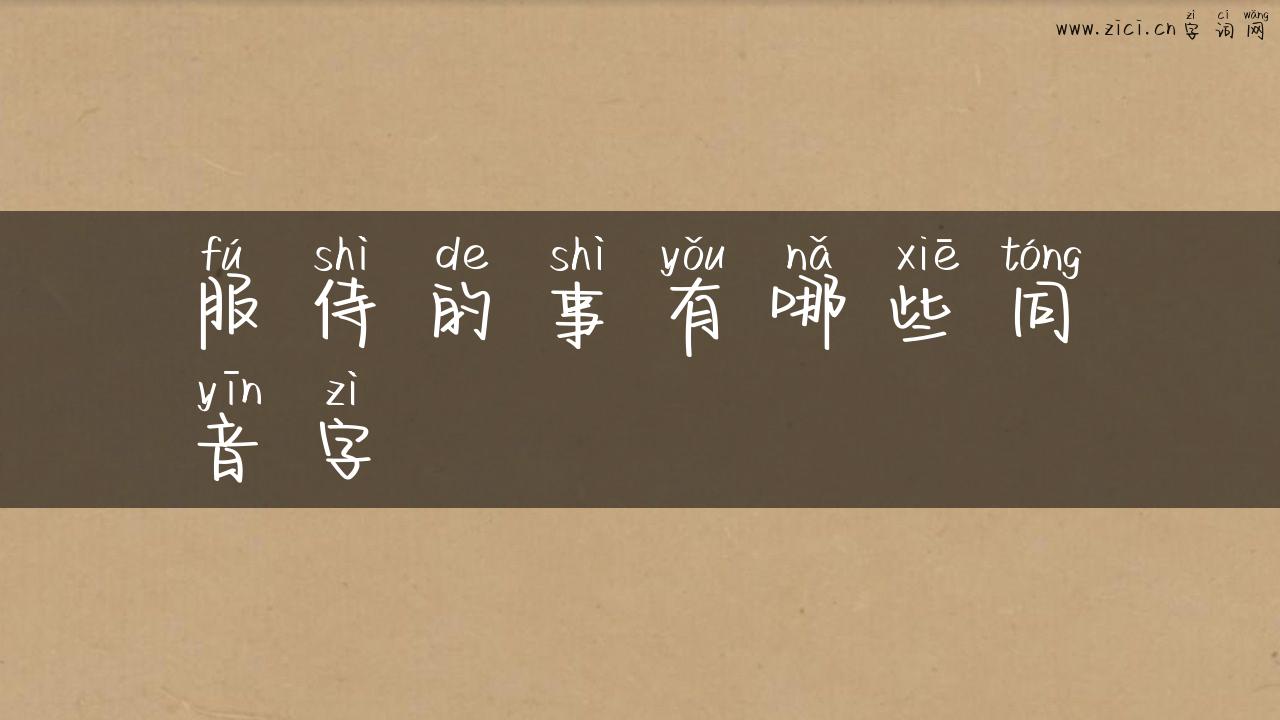 zì cí wǎng
www.zici.cn 字词网
fú shì de shì yǒu nǎ xiē tóng
服侍的事有哪些同
yīn zì
音字